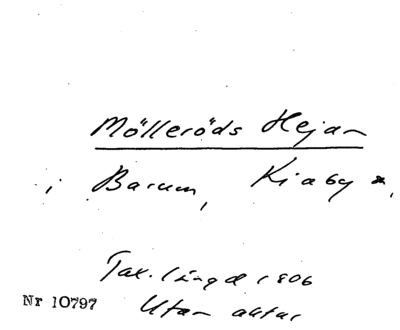 Mölleröds Hejan
i Barum, Kiaby *,
Tax. längd 1806
Nr 10797
Utan aktnr